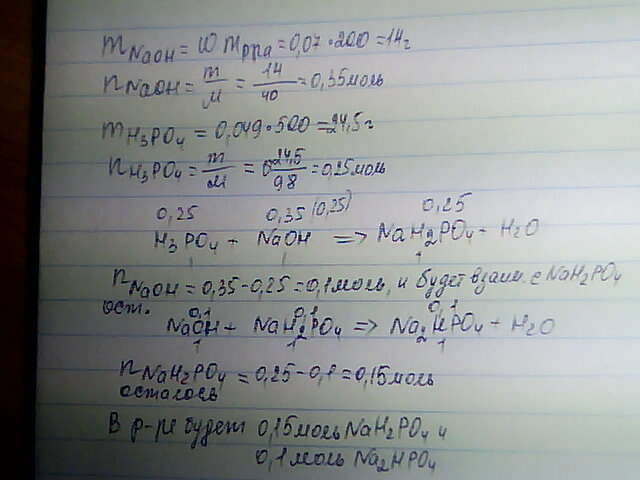 m NaOH = ω m р-ра = 0,07 • 200 = 14 г
n NaOH = m/M = 14/40 = 0,35 моль
m H3PO4 = 0,049 • 500 = 24,5 г
n H3PO4 = m/M = 24,5/98 = 0,25 моль
0,25 0,35 (0,25) 0,25
H3PO4 + NaOH => NaH2PO4 + H2O
1 1 1
n NaOH = 0,35 - 0,25 = 0,1 моль, и будет взаим. с NaH2PO4
ост.
0,1 0,1 0,1
NaOH + NaH2PO4 => Na2HPO4 + H2O
1 1 1
n NaH2PO4 = 0,25 - 0,1 = 0,15 моль
осталось
В р-ре будет 0,15 моль NaH2PO4 и
0,1 моль Na2HPO4